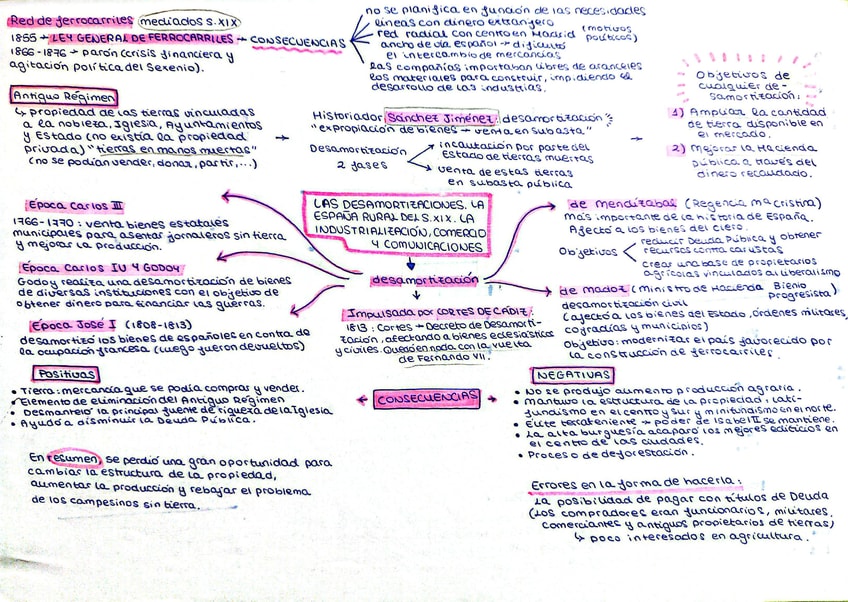 Red de ferrocarriles mediados S.XIX
1855 → LEY GENERAL DE FERROCARRILES → CONSECUENCIAS
1866-1876 → parón (crisis financiera y
agitación política del Sexenio).
no se planifica en función de las necesidades
líneas con dinero extranjero
red radial con centro en Madrid (motivos
políticos)
ancho de vía español → dificultó
el intercambio de mercancías
las compañías importaban libres de aranceles
los materiales para construir, impidiendo el
desarrollo de las industrias.
Antiguo Régimen
↳ propiedad de las tierras vinculadas
a la nobleza, Iglesia, Ayuntamientos
y Estado (no existía la propiedad
privada) "tierras en manos muertas"
(no se podían vender, donar, partir,...)
→
Historiador Sánchez Jiménez: desamortización:
"expropiación de bienes → venta en subasta"
Desamortización
2 fases
incautación por parte del
Estado de tierras muertas
venta de estas tierras
en subasta pública
→
Objetivos de
cualquier de-
samortización:
1) Ampliar la cantidad
de tierra disponible en
el mercado.
2) Mejorar la Hacienda
pública a través del
dinero recaudado.
LAS DESAMORTIZACIONES. LA
ESPAÑA RURAL DEL S.XIX. LA
INDUSTRIALIZACIÓN, COMERCIO
Y COMUNICACIONES
desamortización
Época Carlos III
1766-1770: venta bienes estatales
municipales para asentar jornaleros sin tierra
y mejorar la producción.
Época Carlos IV y GODOY
Godoy realiza una desamortización de bienes
de diversas instituciones con el objetivo de
obtener dinero para financiar las guerras.
Época José I (1808-1813)
desamortizó los bienes de españoles en contra de
la ocupación francesa (luego fueron devueltos)
Impulsada por CORTES DE CÁDIZ:
1813: Cortes → Decreto de Desamorti-
zación, afectando a bienes eclesiásticos
y civiles. Quedó en nada con la vuelta
de Fernando VII.
de mendizábal (Regencia Mª Cristina)
Más importante de la historia de España.
Afectó a los bienes del clero.
Objetivos
reducir Deuda Pública y obtener
recursos contra carlistas
crear una base de propietarios
agrícolas vinculados al liberalismo
de madoz (ministro de Hacienda Bienio
Progresista)
desamortización civil
(afectó a los bienes del Estado, órdenes militares,
cofradías y municipios)
Objetivo: modernizar el país favorecido por
la construcción de ferrocarriles.
CONSECUENCIAS
Positivas
• Tierra: mercancía que se podía comprar y vender.
• Elemento de eliminación del Antiguo Régimen
• Desmanteló la principal fuente de riqueza de la Iglesia
• Ayudó a disminuir la Deuda Pública.
En resumen, se perdió una gran oportunidad para
cambiar la estructura de la propiedad,
aumentar la producción y rebajar el problema
de los campesinos sin tierra.
NEGATIVAS
• No se produjo aumento producción agraria.
• Mantuvo la estructura de la propiedad, lati-
fundismo en el centro y sur y minifundismo en el norte.
• Élite terrateniente → poder de Isabel II se mantiene.
• La alta burguesía acaparó los mejores edificios en
el centro de las ciudades.
• Proceso de deforestación.
Errores en la forma de hacerla:
La posibilidad de pagar con títulos de Deuda
(los compradores eran funcionarios, militares,
comerciantes y antiguos propietarios de tierras)
↳ poco interesados en agricultura.